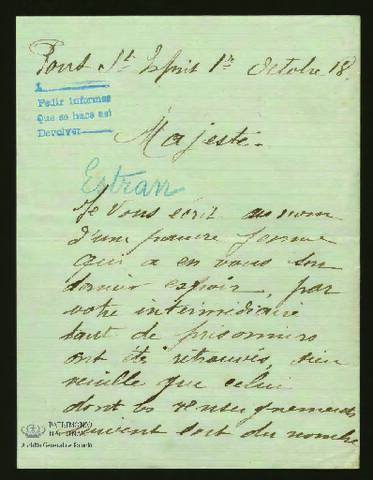 Pont St Esprit 1er Octobre 18
1
Pedir informes
Que se hace asi
Devolver
Majesté.
Estran
Je vous écrit au nom
d'une pauvre femme
qui a en vous son
dernier espoir, par
votre intermédiaire
tant de prisonniers
ont été retrouvés,
veuille que celui
dont les renseignements
suivent soit du nombre
PATRIMONIO
NACIONAL
Archivo General de Palacio